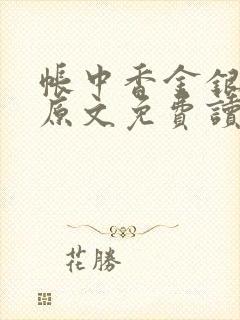 帳中香金銀
原文免費讀
花勝